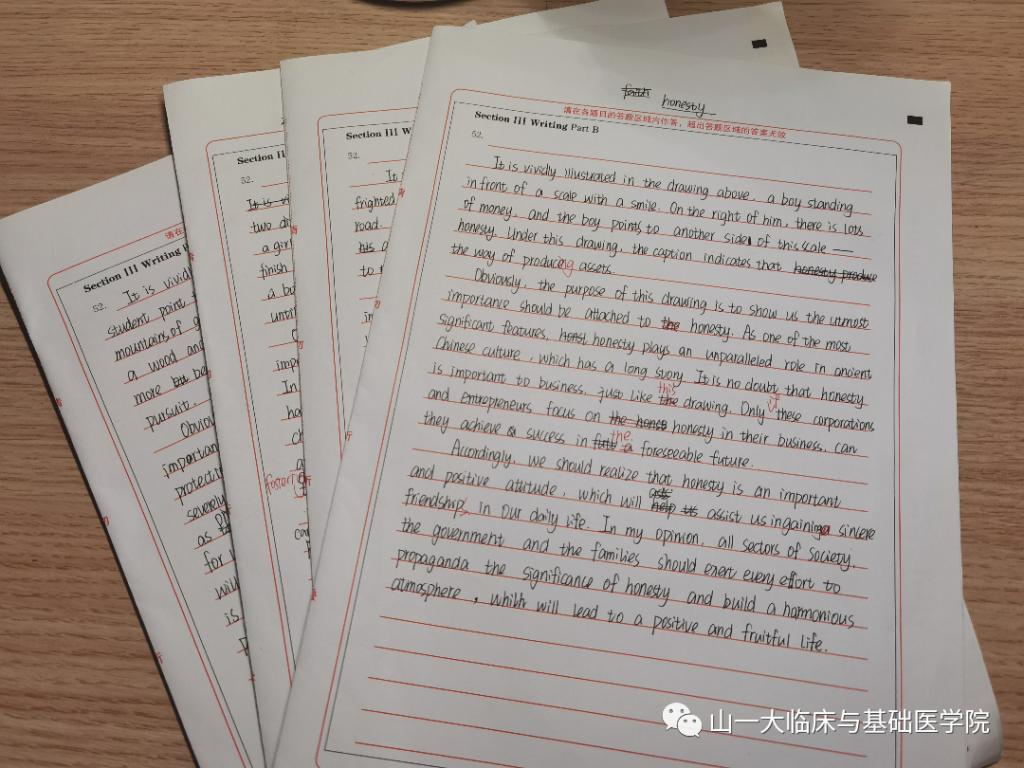 honesty
请在各题目的答题区域内作答，超出答题区域的答案无效
Section III Writing Part B
52.
It is vividly illustrated in the drawing above, a boy standing
in front of a scale with a smile. On the right of him, there is lots
of money, and the boy points to another side of this scale —
honesty. Under this drawing, the caption indicates that honesty produce
the way of producing assets.
Obviously, the purpose of this drawing is to show us the utmost
importance should be attached to the honesty. As one of the most
significant features, honesty plays an unparalleled role in ancient
Chinese culture, which has a long story. It is no doubt that honesty
is important to business, just like this drawing. Only if these corporations
and entrepreneurs focus on the honest honesty in their business, can
they achieve a success in the foreseeable future.
Accordingly, we should realize that honesty is an important
and positive attitude, which will help us assist us in gaining a sincere
friendship in our daily life. In my opinion, all sectors of society,
the government and the families should exert every effort to
propaganda the significance of honesty and build a harmonious
atmosphere, which will lead to a positive and fruitful life.
Section III W
52.
It
frighted
road
his
to
Section II
52.
It is vi
two
a girl
finish
a bo
until
impo
In
ha
foster
Section III Writing
52.
It is vivid
student point
mountains of g
a wood and
more but be
pursuit.
Obvio
importan
protecti
severely
as
for
will
is
山一大临床与基础医学院